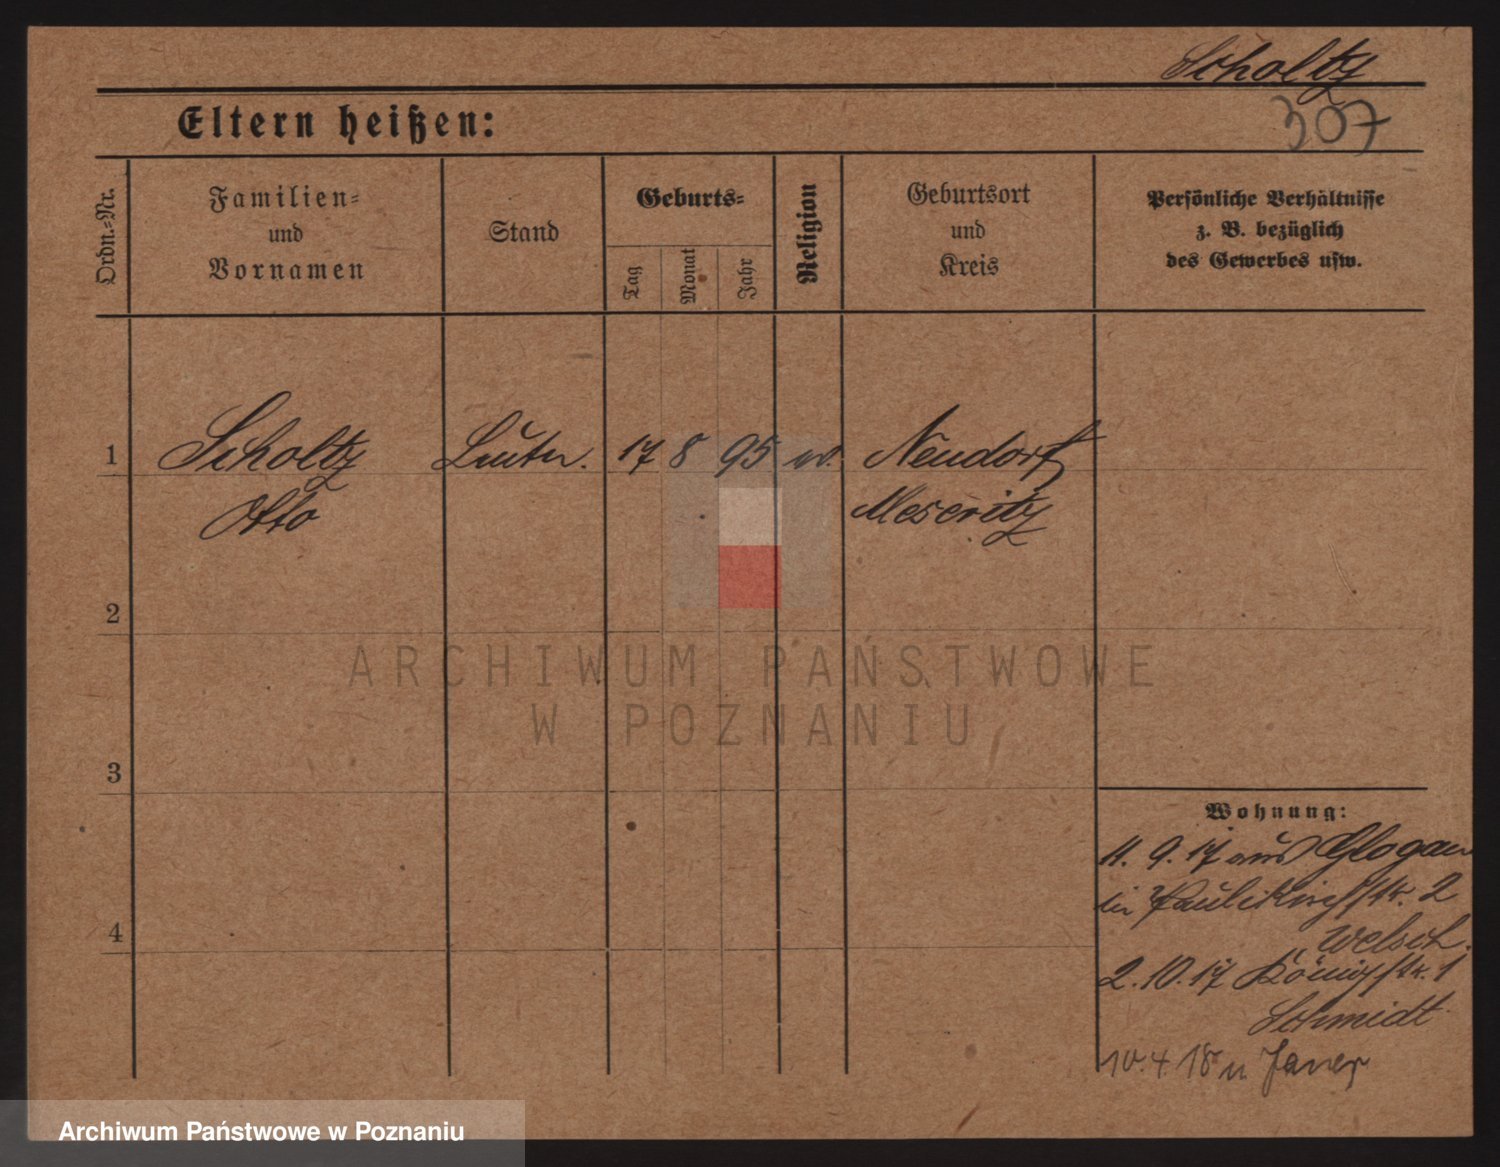 Scholtz
307
Eltern heißen:
Ordn.=Nr.
Familien=
und
Vornamen
Stand
Geburts=
Tag
Monat
Jahr
Religion
Geburtsort
und
Kreis
Persönliche Verhältnisse
z. B. bezüglich
des Gewerbes usw.
1
Scholtz
Otto
17 8 95
Neudorf
Meseritz
2
3
4
Wohnung:
11. 9. 17 aus Glogau
in Paulikirchstr. 2
Welsch.
2. 10. 17 Königstr. 1
Schmidt
10. 4 18 n Jauer
ARCHIWUM PAŃSTWOWE
W POZNANIU
Archiwum Państwowe w Poznaniu